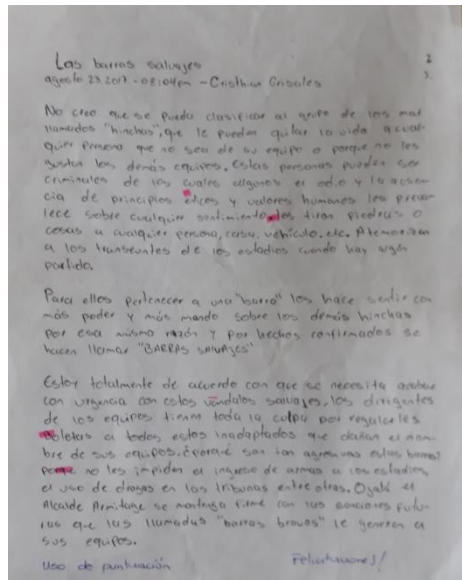 2
3.
Las barras salvajes
agosto 23 2017 - 08:04pm - Cristhian Grisales
No creo que se pueda clasificar al grupo de los mal
llamados "hinchas", que le pueden quitar la vida a cual-
quier persona que no sea de su equipo o porque no les
gustan los demás equipos. Estas personas pueden ser
criminales de los cuales algunos el odio y la ausen-
cia de principios éticos y valores humanos les preva-
lece sobre cualquier sentimiento. los tiran piedras o
cosas a cualquier persona, casa, vehículo, etc. Atemorizan
a los transeuntes de los estadios cuando hay algún
partido.
Para ellos pertenecer a una "barra" los hace sentir con
más poder y más mando sobre los demás hinchas
por esa misma razón y por hechos confirmados se
hacen llamar "BARRAS SALVAJES"
Estoy totalmente de acuerdo con que se necesita acabar
con urgencia con estos vándalos salvajes. los dirigentes
de los equipos tienen toda la culpa por regalarles
boletas a todos estos inadaptados que dañan el nom-
bre de sus equipos. ¿porqué son tan agresivas estas barras?
porque no les impiden el ingreso de armas a los estadios,
el uso de drogas en las tribunas entre otras. Ojalá el
Alcalde Armitage se mantenga firme con las sanciones futu-
ras que las llamadas "barras bravas" le generen a
sus equipos.
Uso de puntuación
Felicitaciones!